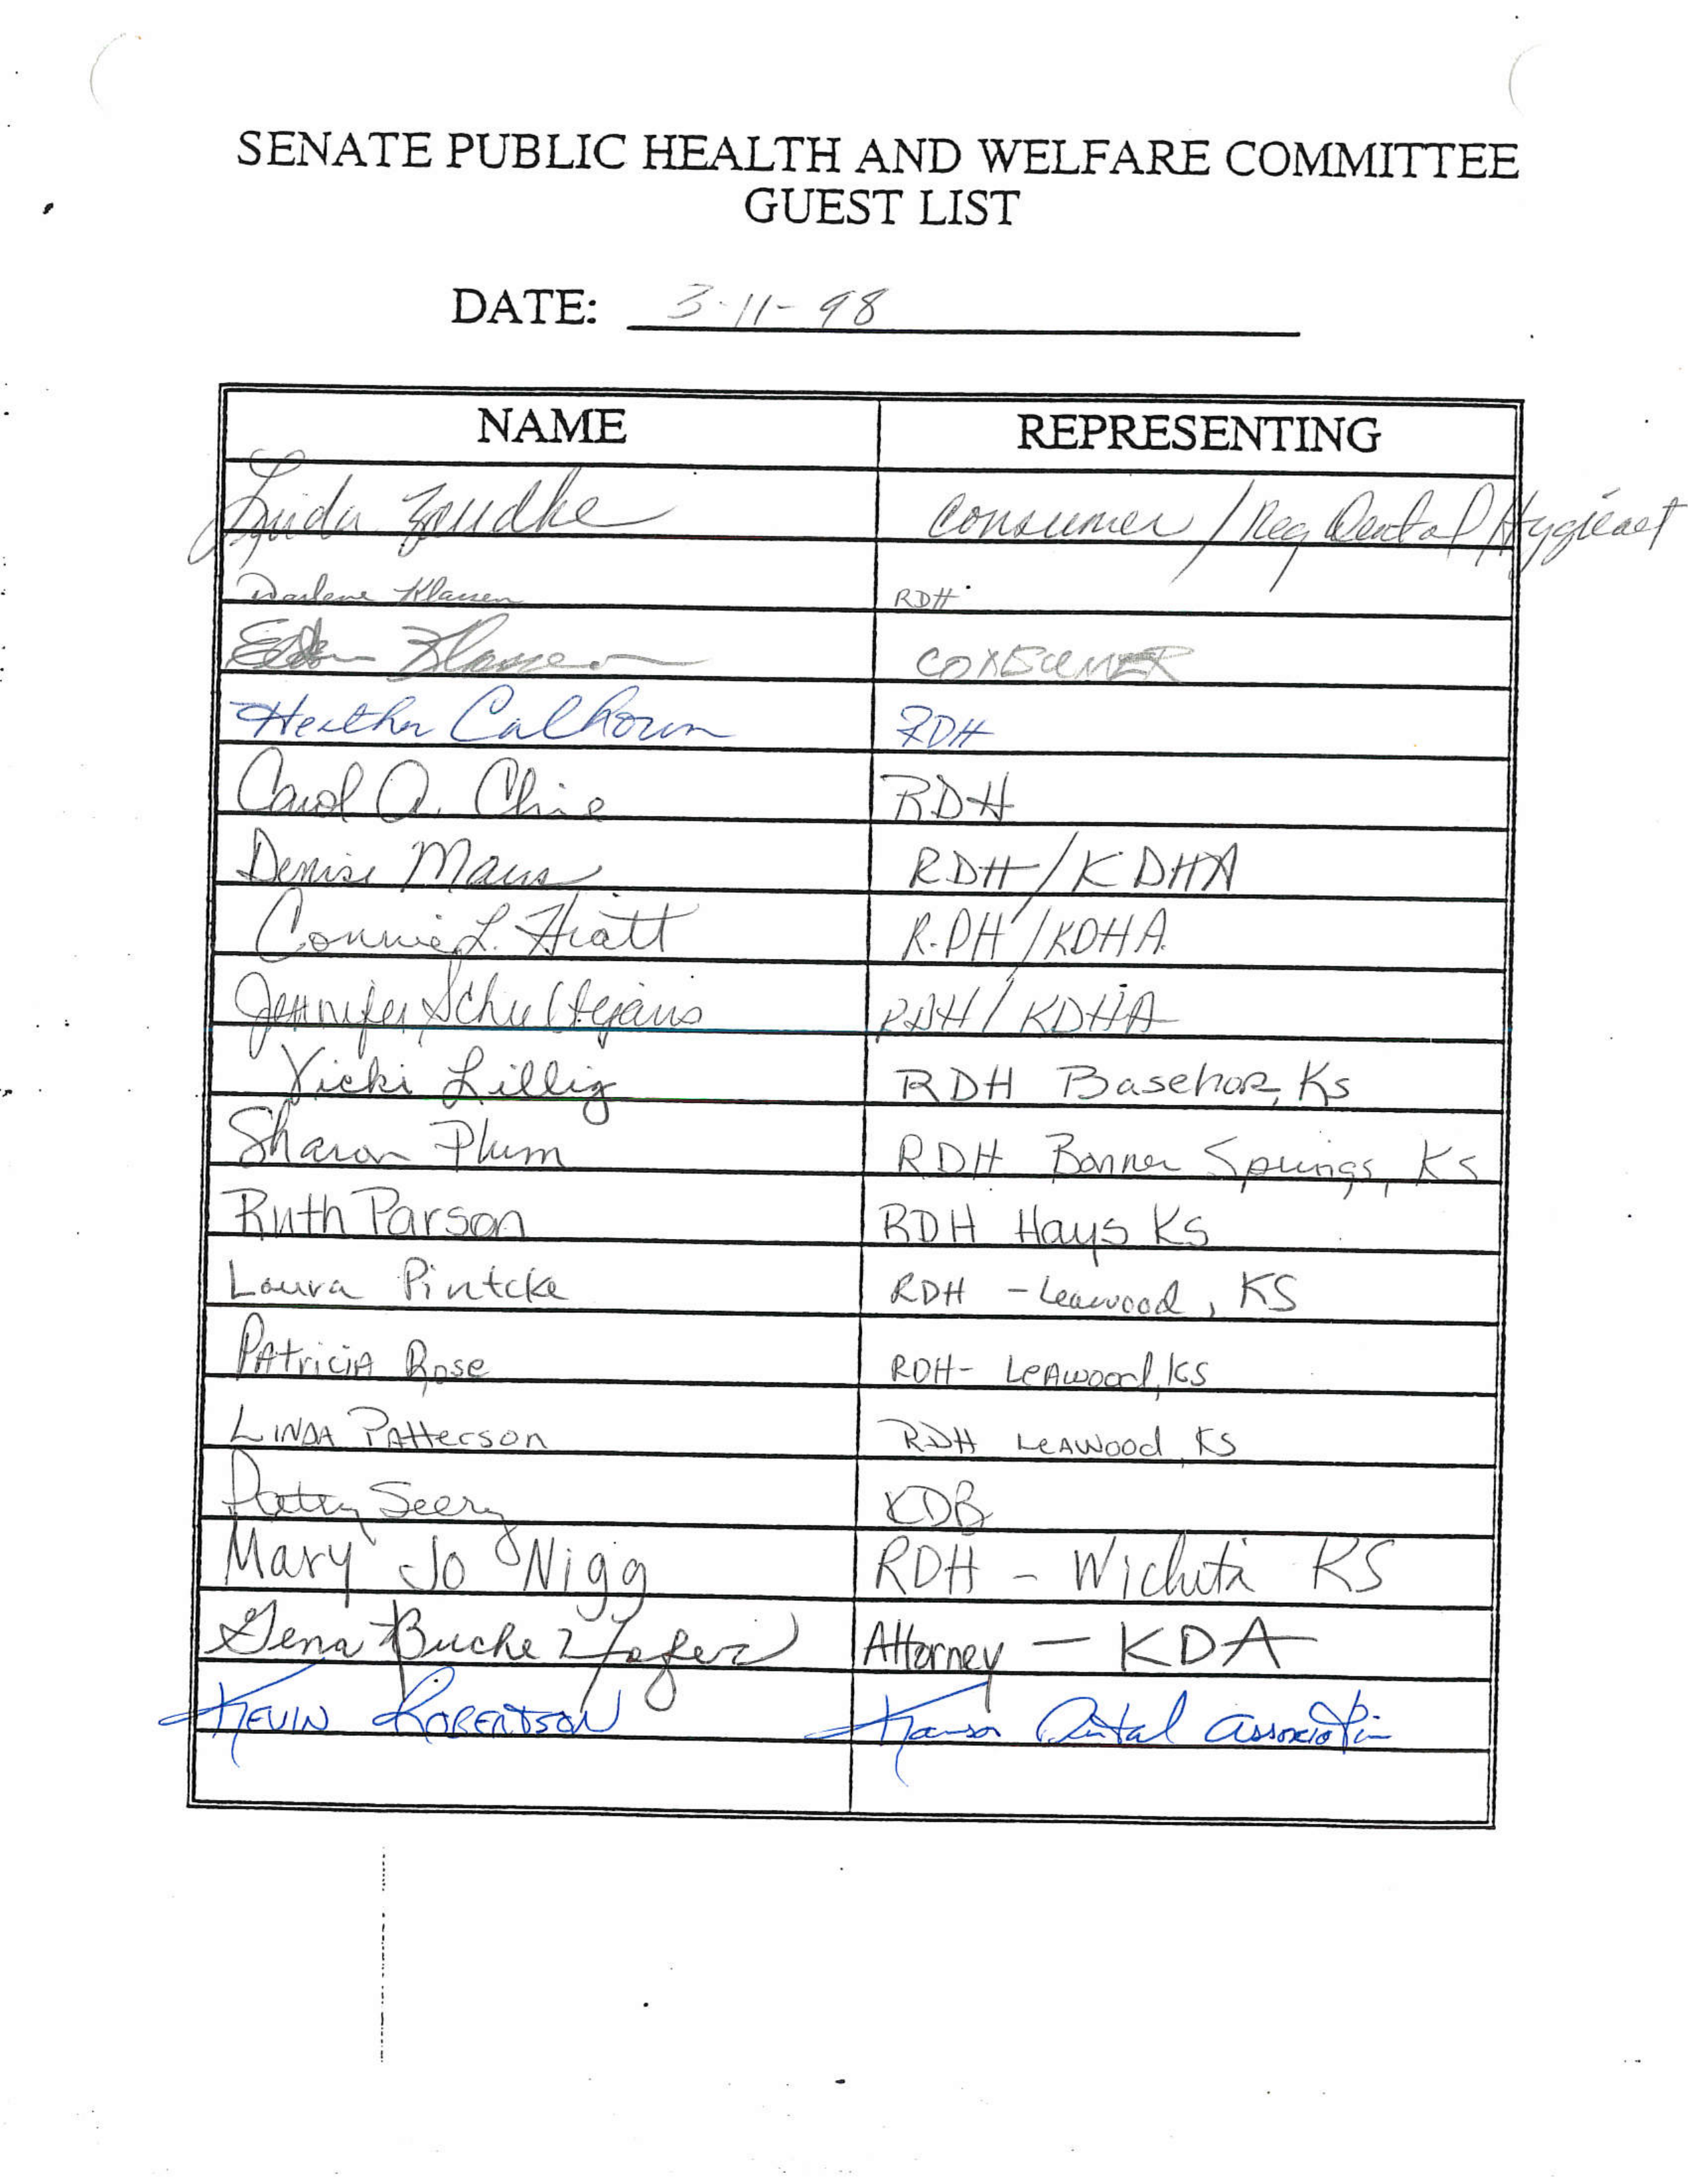 SENATE PUBLIC HEALTH AND WELFARE COMMITTEE
GUEST LIST
DATE: 3-11-98
NAME REPRESENTING
Linda Consumer / Reg Dental Hygienest
Darlene Klassen RDH
Klassen CONSUMER
Heather Calhoun RDH
Carol A. Cline RDH
Denise Maus RDH/KDHA
Connie L. Hiatt R.DH/KDHA
Jennifer Schultejans RDH/KDHA
Vicki Lillig RDH Basehor, Ks
Sharon Plum RDH Bonner Springs, KS
Ruth Parson RDH Hays KS
Laura Pintcke RDH - Leawood, KS
PAtriciA Rose RDH- LeAwood, KS
LINDA PAtterson RDH LeAwood KS
Patty Seery KDB
Mary Jo Nigg RDH - Wichita KS
Attorney - KDA
KEVIN ROBERTSON Kansas Dental Association